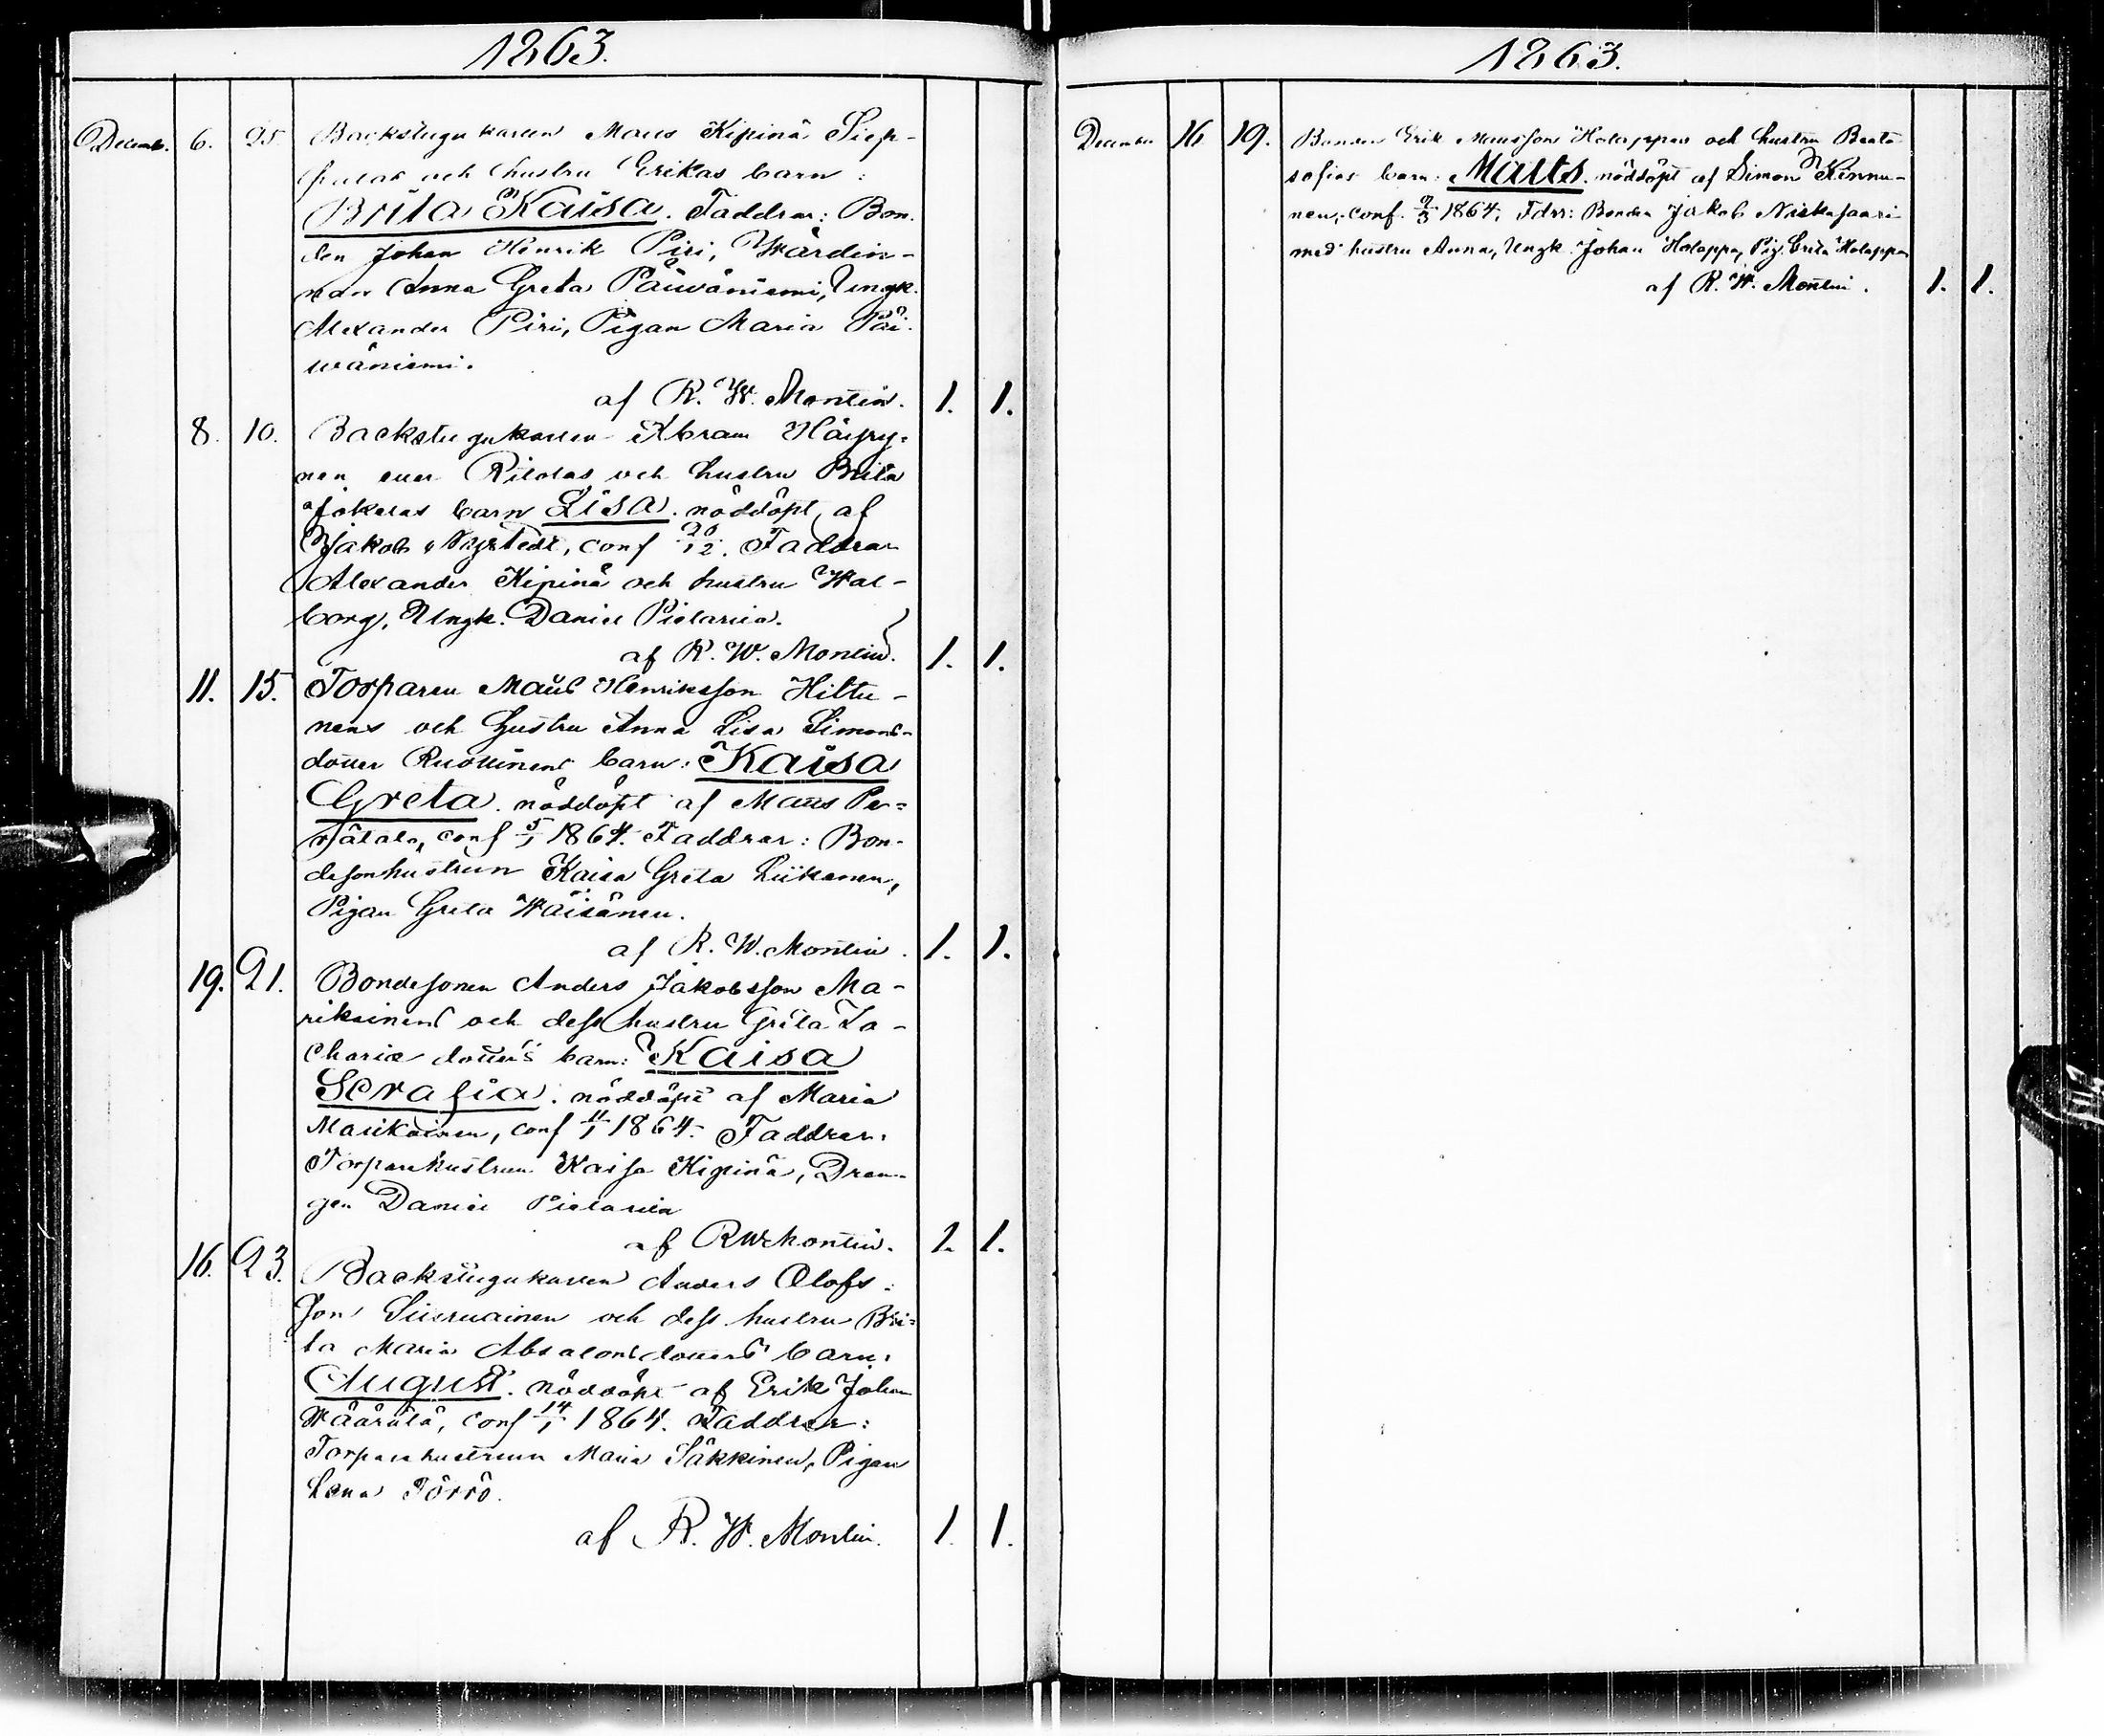 1863.
Decemb. 6. 25. Backstugukarlen Matts Kipinä Siep-
och hustru Erikas barn:
Brita Kaisa. Faddrar: Bon-
den Johan Henrik Piri, Wärdin-
nan Anna Greta Päiwäniemi, Ungk.
Alexander Piri, Pigan Maria Päi-
wäniemi.
af R. W. Montin. 1. 1.
8. 10. Backstugukarlen Abram Härjy-
nen Ritolas och hustru Brita
Jokelas barn Lisa. nöddöpt af
Jakob Nygstedt, conf 26/12. Faddrar
Alexander Kipinä och hustru Wal-
borg, Ungk. Daniel Pietarila.
af R. W. Montin. 1. 1.
11. 15. Torparen Matts Henriksson Hiltu-
nens och hustru Anna Lisa Simons-
dotter Ruottinens barn: Kaisa
Greta. nöddöpt af Matts Pe-
rätalo, conf 5/1 1864. Faddrar: Bon-
desonhustrun Kaisa Greta Liikanen,
Pigan Greta Wäisänen.
af R. W. Montin. 1. 1.
19. 21. Bondesonen Anders Jakobsson Ma-
rikainens och dess hustru Greta Za-
chariæ dotters barn: Kaisa
Serafia. nöddöpt af Maria
Marikainen, conf 11/1 1864. Faddrar:
Torparehustrun Kaisa Kipinä, Drän-
gen Daniel Pietarila
af RWMontin. 1. 1.
16. 23. Backstugukarlen Anders Olofs-
son Siiruainen och dess hustru Bri-
ta Maria Absalonsdotters barn:
August. nöddöpt af Erik Johan
Määrälä, conf 14/1 1864. Faddrar:
Torparehustrun Maria Säkkinen, Pigan
Lena Törrö.
af R. W. Montin. 1. 1.
1863.
December 16 19. Bonden Erik Mattsson Holappas och hustru Beata
Sofias barn: Matts. nöddöpt af Simon Kinnu-
nen, conf. 9/3 1864, Fdrr: Bonden Jakob Niskasaari
med hustru Anna, Ungk. Johan Holappa, Pig. Brita Holappa
af R. W. Montin. 1. 1.